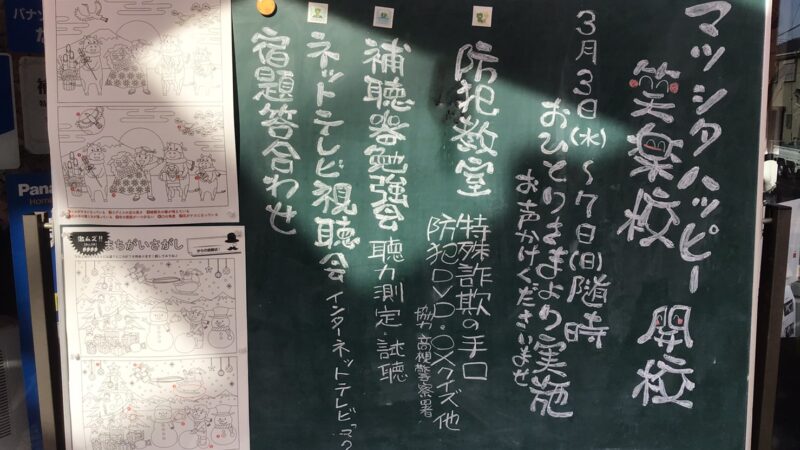 マツシタハッピー
笑楽校 開校
3月3日(水)〜7日(日)随時
おひとりさまより実施
お声かけくださいませ
防犯教室 特殊詐欺の手口
防犯DVD・○×クイズ他
協力 高槻警察署
補聴器勉強会 聴力測定・試聴
ネットテレビ視聴会 インターネットテレビ
宿題答合わせ
激ムズ!!
まちがいさがし
からの挑戦状!
パナソ
Pana
Home